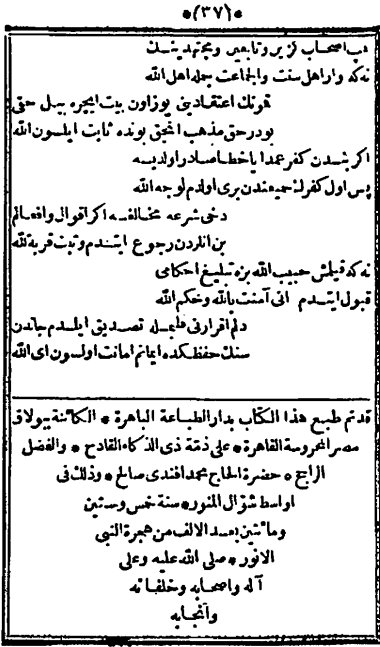 *(٣٧)*
هب اصحاب گزين و تابعين و مجتهدينك
نه كه وار اهل سنت و الجماعت جمله اهل الله
قونك اعتقادينى يوز اون بيت ايچره بيل حقى
بودر حق مذهب انجق بونده ثابت ايلسون الله
اكر بندن كفر عمدا يا خطا صادر اولديسه
پس اول كفرلڭ جميعندن برى اولدم لوجه الله
دخى شرعه مخالفسه اكر اقوال و افعالم
بن انلردن رجوع ايتدم و تبت قربة لله
نه كه قيلمش حبيب الله بزه تبليغ احكامى
قبول ايتدم انى آمنت بالله و حكم الله
دلم اقرارنى قلبمله تصديق ايلدم جاندن
سنك حفظكده ايمانم امانت اولسون اى الله
قد تم طبع هذا الكتاب بدار الطباعة الباهرة * الكائنة ببولاق
مصر المحروسة القاهرة * على ذمة ذى الذكاء القادح * والفضل
الراجح * حضرة الحاج محمد افندى صالح * وذلك فى
اواسط شوال المنور * سنة خمس وستين
ومائتين بعد الالف من هجرة النبى
الانور * صلى الله عليه وعلى
آله واصحابه وخلفائه
وانجابه